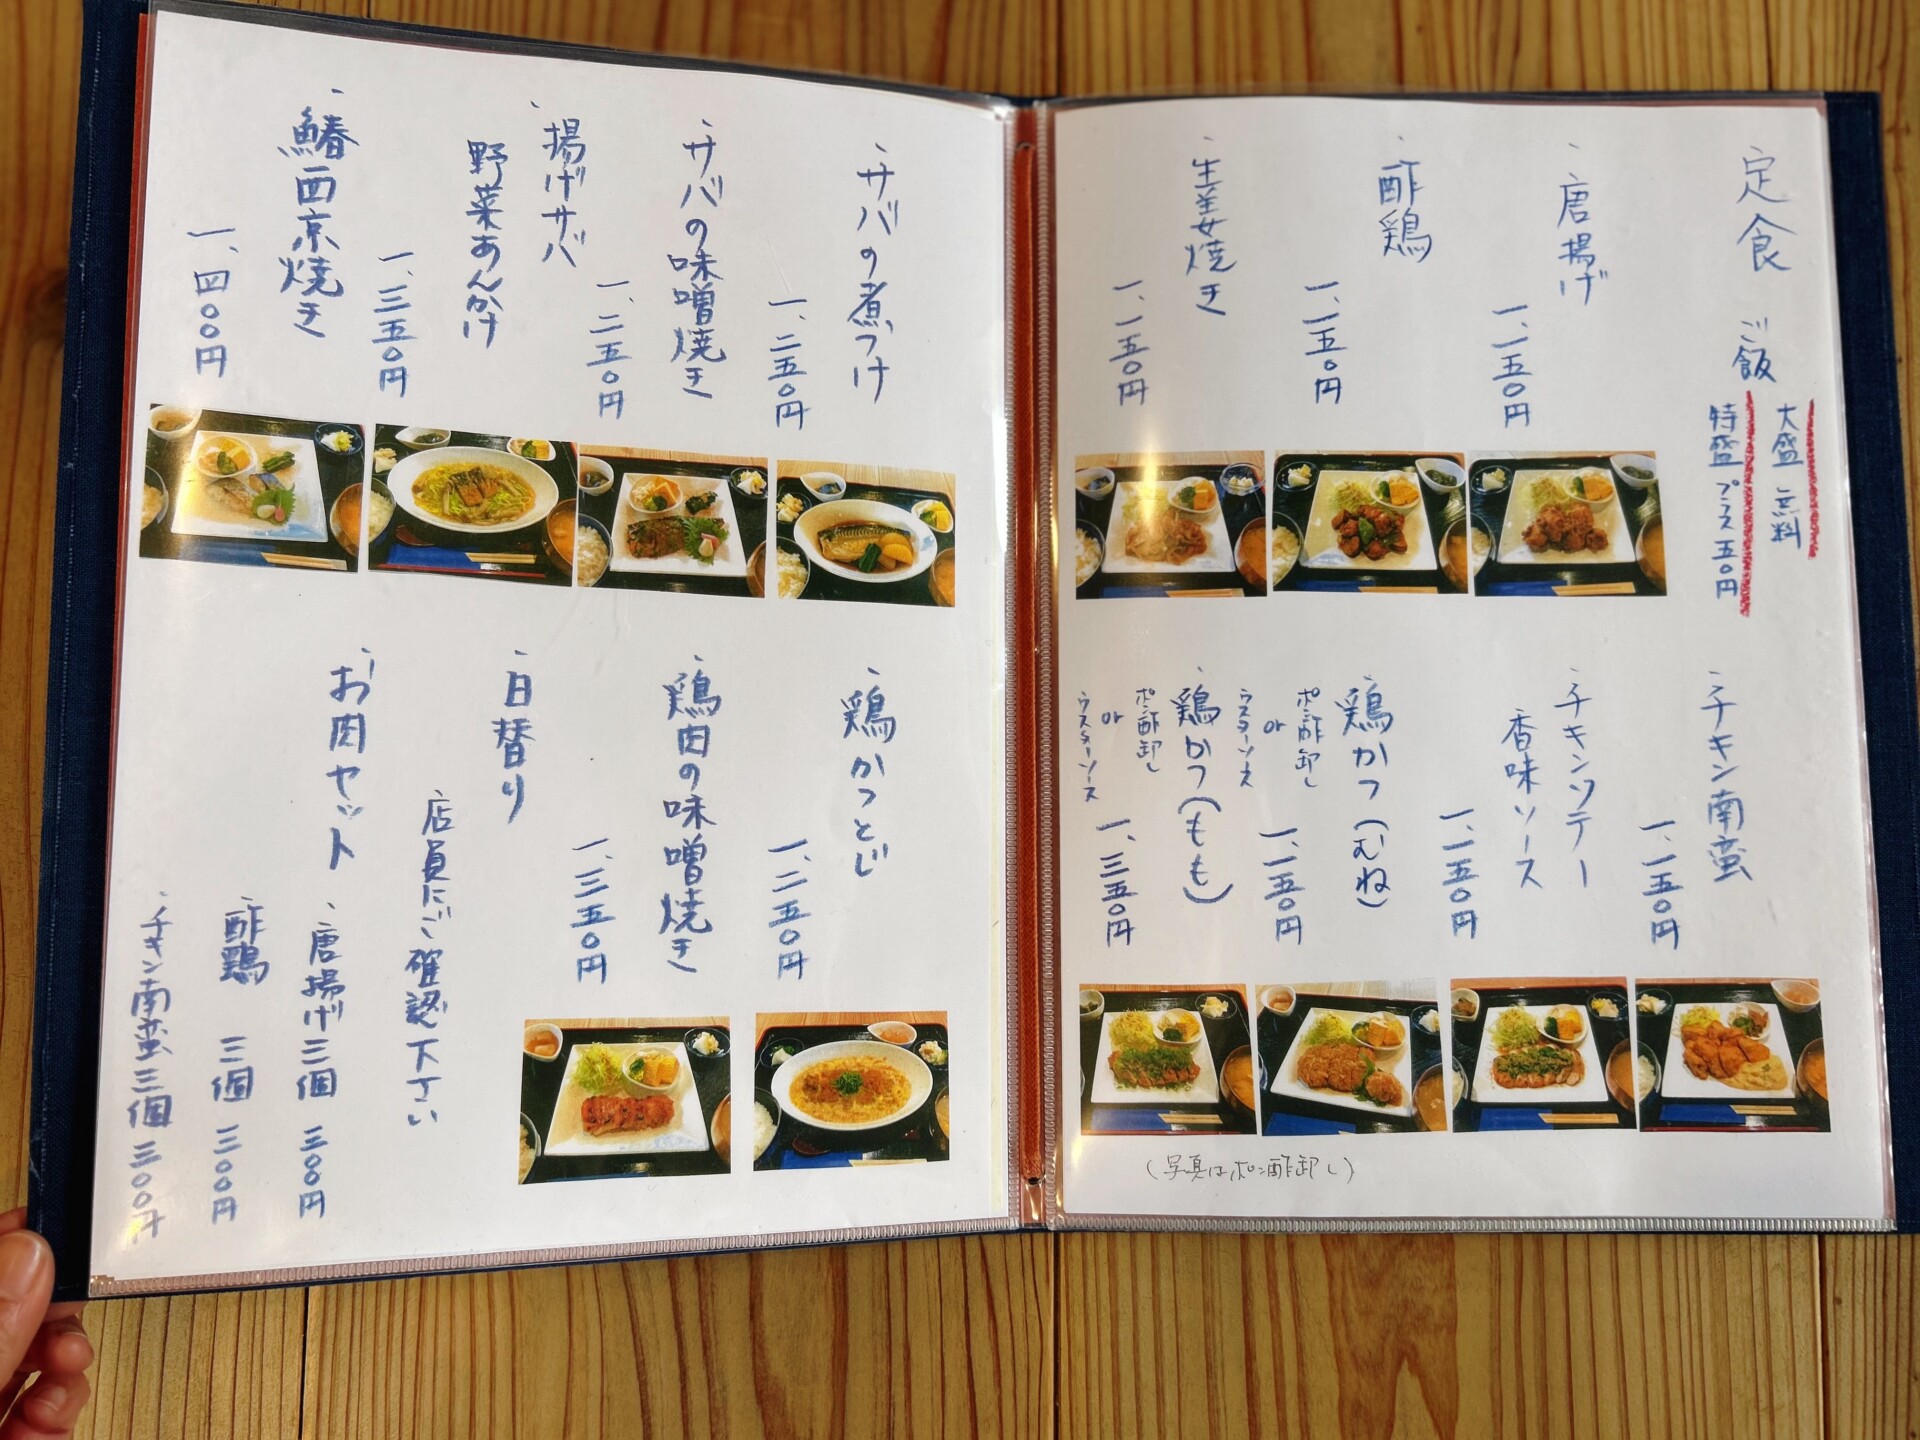 定食
ご飯
大盛 無料
特盛 プラス五〇円
・唐揚げ
一、一五〇円
・酢鶏
一、一五〇円
・生姜焼き
一、一五〇円
・チキン南蛮
一、一五〇円
・チキンソテー
香味ソース
一、一五〇円
・鶏かつ(むね)
ポン酢卸し
or
ウスターソース
一、一五〇円
・鶏かつ(もも)
ポン酢卸し
or
ウスターソース
一、三五〇円
(写真はポン酢卸し)
・サバの煮つけ
一、二五〇円
・サバの味噌焼き
一、二五〇円
・揚げサバ
野菜あんかけ
一、三五〇円
・鰆西京焼き
一、四〇〇円
・鶏かつとじ
一、二五〇円
・鶏肉の味噌焼き
一、三五〇円
・日替り
店員にご確認下さい
・お肉セット
・唐揚げ三個 三〇〇円
・酢鶏 三個 三〇〇円
・チキン南蛮三個 三〇〇円